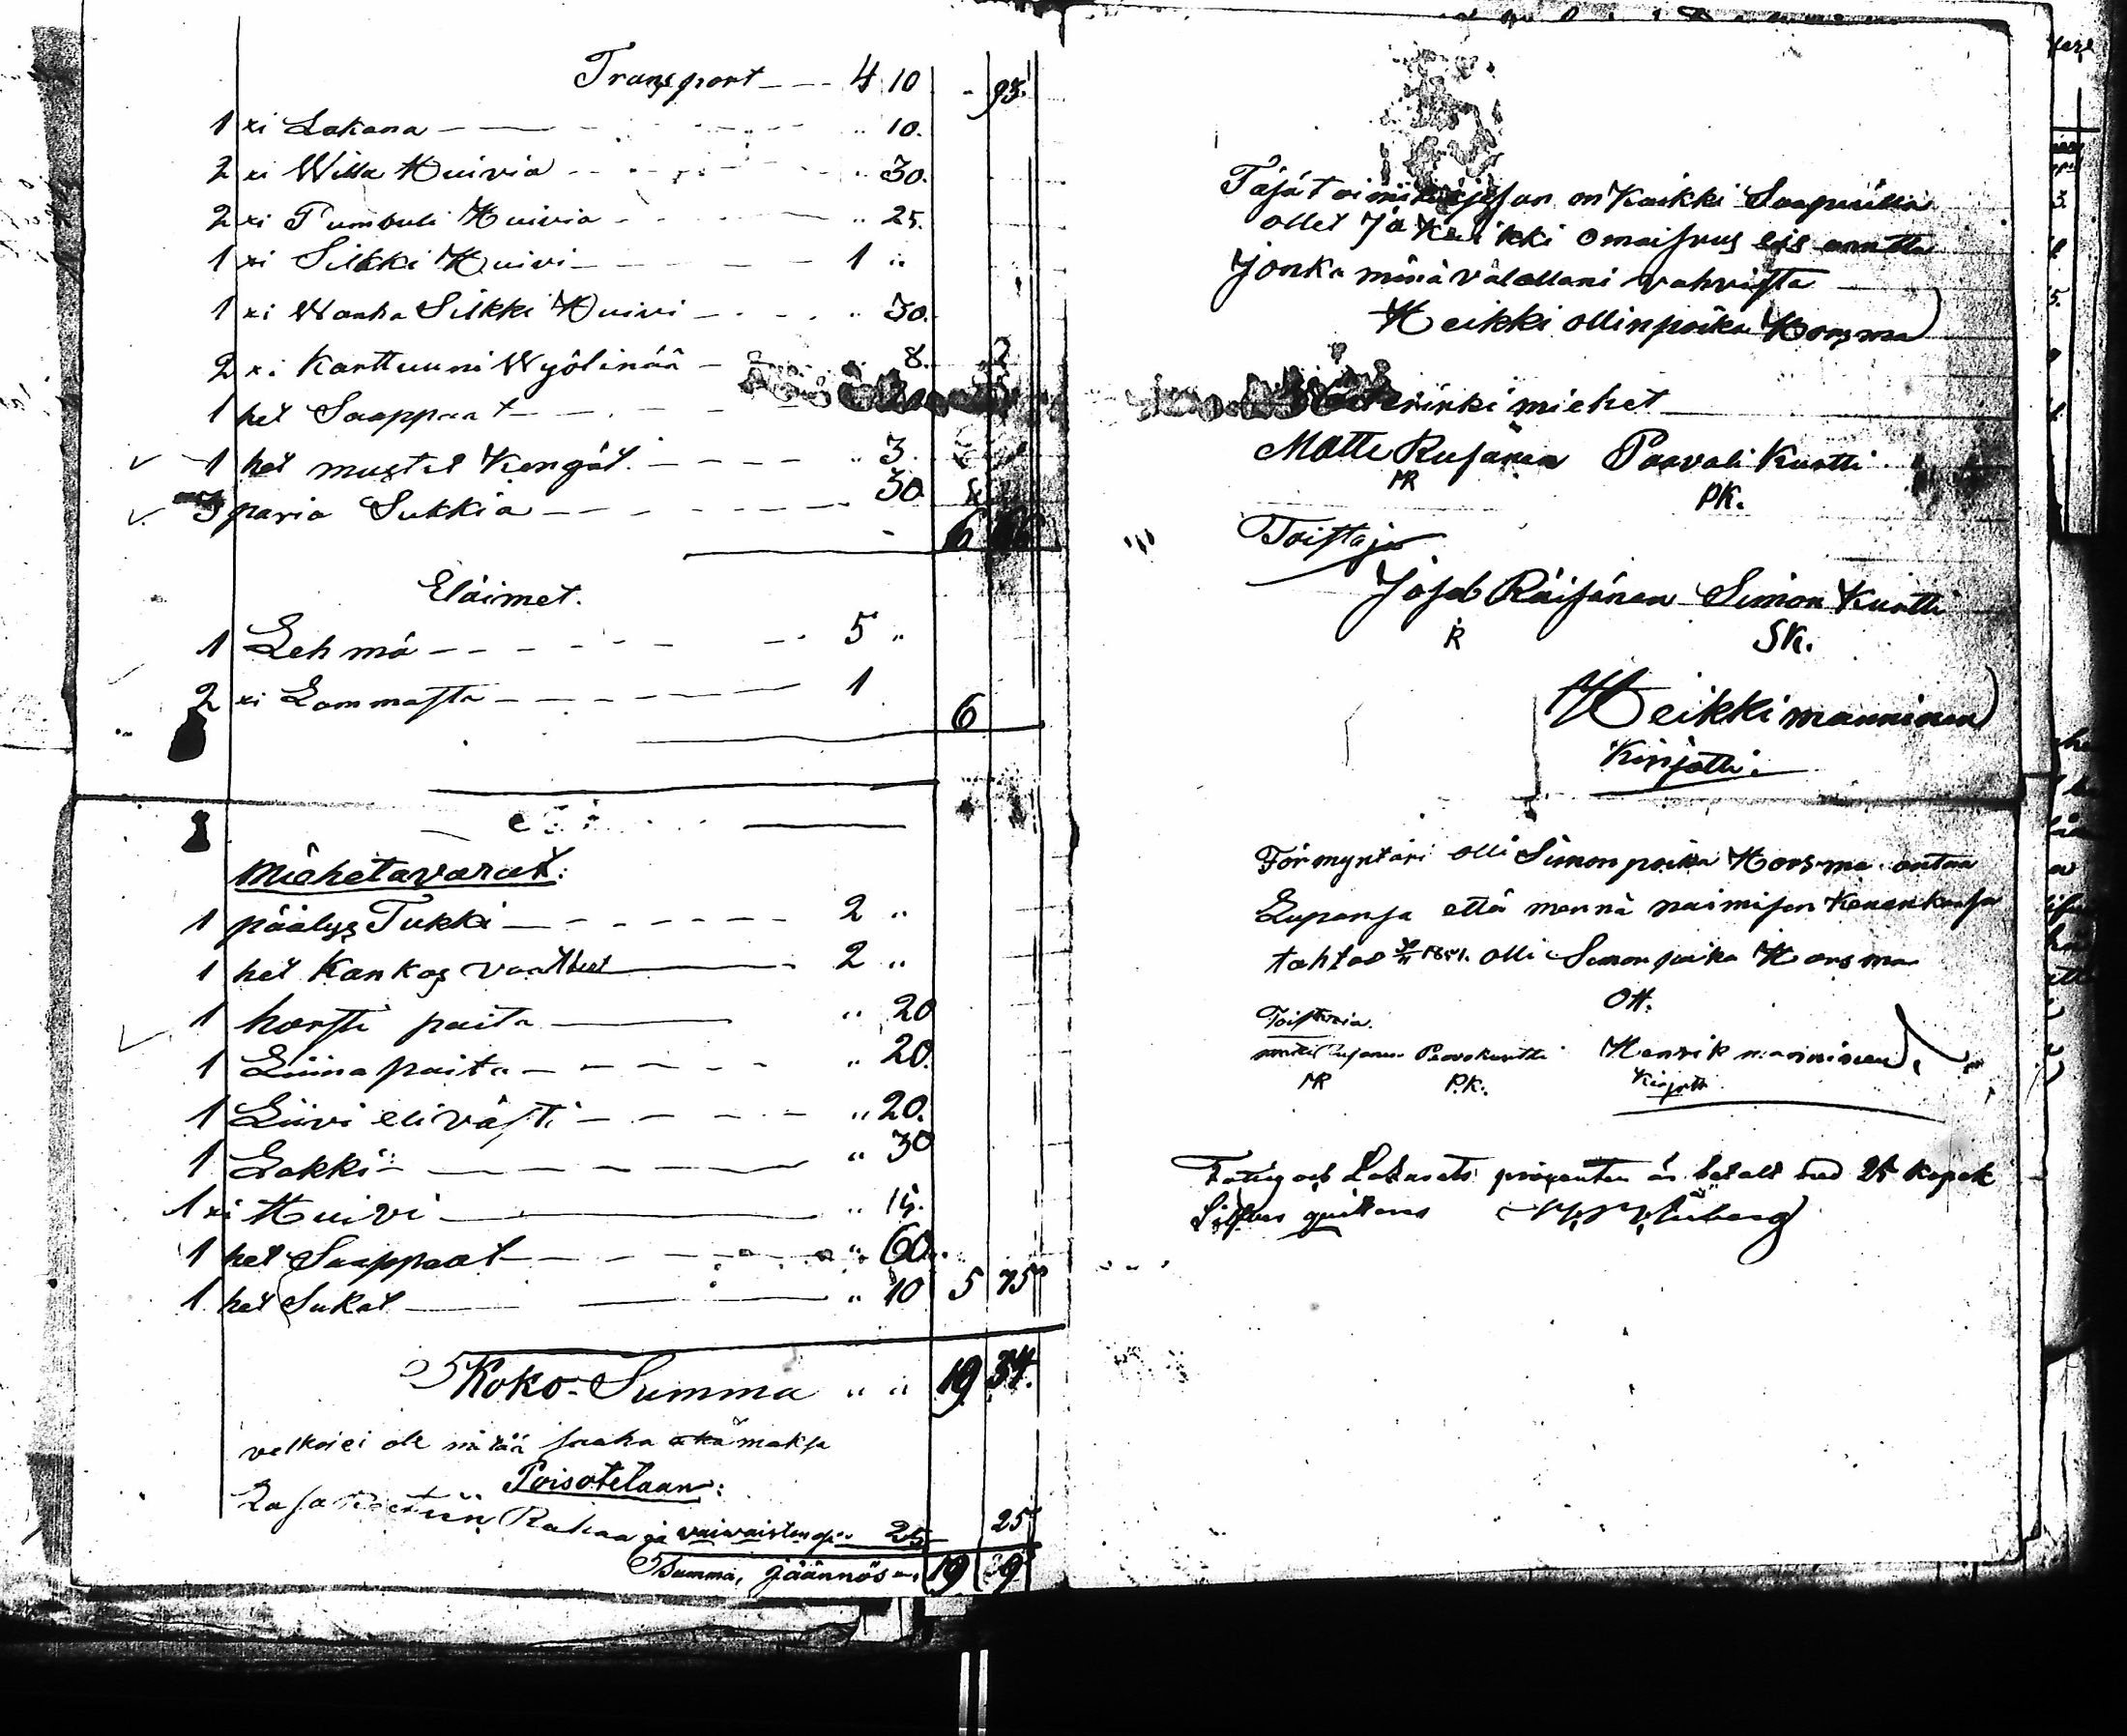 Transport 4 10 - 93.
1 xi Lakana " 10.
2 xi Willa Huivia " 30.
2 xi Pumbuli Huivia " 25.
1 xi Silkki Huivi 1 "
1 xi Wanha Silkki Huivi " 30.
2 xi Karttuuni Wyölinää 8.
1 het Saappaat
1 het mustet Kengät. " 3.
3 paria Sukkia 30
6
Eläimet.
1 Lehmä 5 "
2 xi Lammasta 1
6
Miehetavarat:
1 päälys Tukki 2 "
1 het Kankas vaatteet 2 "
1 horsti paita " 20
1 Liina paita " 20.
1 Liivi eli västi " 20.
1 Lakki " 30
1 xi Huivi " 15.
1 het Saappaat " 60.
1 het Sukat " 10 5 75
Koko-Summa " " 19 34.
velkoi ei ole mitää saaha eikä maksa
Poisotetaan:
Rahaa ja vaivaisten 25 25
Summa, jäännös 19 9
Täsä on Kaikki Saapuilla
ollet Ja Kaikki omaisuus
Jonka minä valallani vahvista
Heikki ollinpoika Horsma
miehet
Matti Rusanen Paavali Kurtti
MR PK.
Toistaja
Josab Räisänen Simon Kurtti
R SK.
Heikki manninen
Kirjotti.
Förmyntäri olli Simon poika Horsma antaa
Lupansa että mennä naimisen Kenenkansa
tahtoo 1851. olli Simon poika Horsma
OH.
Toistavia.
Paavo Kurtti Henrik manninen
MR P.K. Kirjotti
Fattig och procenten är betalt med 25 kopek
Silfver